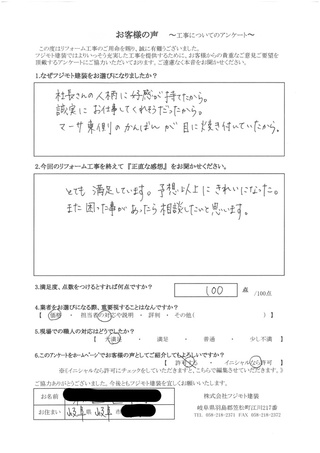 お客様の声 ～工事についてのアンケート～
この度はリフォーム工事のご用命を賜り、誠に有難うございました。
フジモト建装ではよりいっそう充実した工事を提供するために、お客様からの貴重なご意見ご要望を
頂戴するアンケートにご協力いただいております。ご遠慮なく本音をお聞かせください。
1.なぜフジモト建装をお選びになりましたか?
社長さんの人柄に好感が持てたから。
誠実にお仕事してくれそうだったから。
マーサ東側のかんばんが目に焼き付いていたから。
2.今回のリフォーム工事を終えて『正直な感想』をお聞かせください。
とても満足しています。予想以上にきれいになった。
また困った事があったら相談したいと思います。
3.満足度、点数をつけるとすれば何点ですか?
100 点 /100点
4.業者をお選びになる際、重要視することはなんですか?
【 価格 ・ 担当者の対応や説明 ・ 評判 ・ その他( )】
5.現場での職人の対応はどうでしたか?
【 大満足 ・ 満足 ・ 普通 ・ 少し不満 】
6.このアンケートをホームページでお客様の声としてご紹介してもよろしいですか?
【 許可する ・ イニシャルなら許可 】
(※イニシャルなら許可にチェックをしていただきますと、こちらで編集させていただきます。)
ご協力ありがとうございました。今後ともフジモト建装を宜しくお願いいたします。
お名前
お住まい 岐阜県 岐阜市
株式会社フジモト建装
岐阜県羽島郡笠松町江川217番
TEL 058-218-2371 FAX 058-218-2372